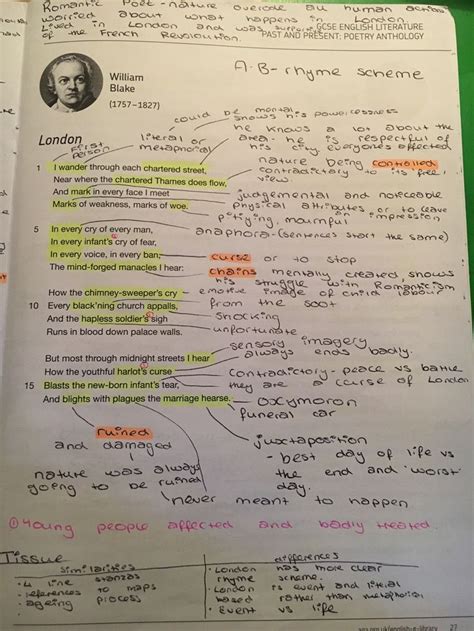 Romantic Poet - nature overode all human actions
worried about what happens in London.
Lived in London and was supporting
of the French Revolution.
GCSE ENGLISH LITERATURE
PAST AND PRESENT: POETRY ANTHOLOGY
A-B-rhyme scheme
William
Blake
(1757–1827)
could be mental
shows his powerlessness
First
person
literal or
metaphorical
he knows a lot about the
area - he is respectful of
his city, everyones affected
London
nature being controlled
contradictory to its 'free'
view.
1 I wander through each chartered street,
Near where the chartered Thames does flow,
And mark in every face I meet
Marks of weakness, marks of woe.
judgemental and noticeable
physical attributes or to leave
an impression
pitiying, mournful
anaphora-(sentences start the same)
5 In every cry of every man,
In every infant's cry of fear,
In every voice, in every ban,
The mind-forged manacles I hear:
curse or to stop
chains mentally created, shows
his struggle with Romanticism
emotive image of child labour
How the chimney-sweeper's cry
10 Every black'ning church appalls,
And the hapless soldier's sigh
Runs in blood down palace walls.
from the soot
shocking
unfortunate
sensory imagery
always ends badly.
But most through midnight streets I hear
How the youthful harlot's curse
15 Blasts the new-born infant's tear,
And blights with plagues the marriage hearse.
contradictory - peace vs battle
they are a curse of London
oxymoron
funeral car
ruined
and damaged
juxtaposition
- best day of life vs
the end and 'worst'
day.
nature was always
going to be ruined
never meant to happen
Young people affected and badly treated.
Tissue
similarities
differences
• 4 line stanzas
• references to maps
• ageing process
• London has more clear
rhyme scheme.
• London is event and literal
based rather than metaphorical
• Event vs life
27